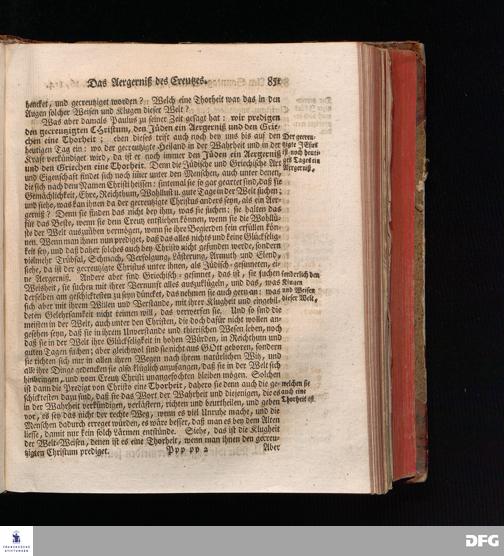 Das Aergerniß des Creutzes. 851
hencket, und gecreutziget worden? Welch eine Thorheit war das in den
Augen solcher Weisen und Klugen dieser Welt?
Was aber damals Paulus zu seiner Zeit gesagt hat: wir predigen
den gecreutzigten Christum, den Jüden ein Aergerniß und den Grie-
chen eine Thorheit; eben dieses trift auch noch bey uns bis auf den
heutigen Tag ein: wo der gecreutzigte Heiland in der Wahrheit und in der
Kraft verkündiget wird, da ist er noch immer den Jüden ein Aergerniß
und den Griechen eine Thorheit. Denn die Jüdische und Griechische Art
und Eigenschaft findet sich noch immer unter den Menschen, auch unter denen,
die sich nach dem Namen Christi heissen: sintemal sie so gar geartet sind, daß sie
Gemächlichkeit, Ehre, Reichthum, Wohllust u. gute Tage in der Welt suchen;
und siehe, was kan ihnen da der gecreutzigte Christus anders seyn, als ein Aer-
gerniß? Denn sie finden das nicht bey ihm, was sie suchen: sie halten das
für das Beste, wenn sie dem Creutz entfliehen können, wenn sie die Wohllü-
ste der Welt auszuüben vermögen, wenn sie ihre Begierden fein erfüllen kön-
nen. Wenn man ihnen nun prediget, daß das alles nichts und keine Glückselig-
keit sey, und daß daher solches auch bey Christo nicht gefunden werde, sondern
vielmehr Trübsal, Schmach, Verfolgung, Lästerung, Armuth und Elend,
siehe, da ist der gecreutzigte Christus unter ihnen, als Jüdisch-gesinneten, ei-
ne Aergerniß. Andere aber sind Griechisch-gesinnet, das ist, sie suchen
Weisheit, sie suchen mit ihrer Vernunft alles auszuklügeln, und das, was
derselben am geschicktesten zu seyn düncket, das nehmen sie auch gern an: was
sich aber mit ihrem Willen und Verstande, mit ihrer Klugheit und eingebil-
deten Gelehrsamkeit nicht reimen will, das verwerfen sie. Und so sind die
meisten in der Welt, auch unter den Christen, die doch dafür nicht wollen an-
gesehen seyn, daß sie in ihrem Unverstande und thierischen Wesen leben, noch
daß sie in der Welt ihre Glückseligkeit in hohen Würden, in Reichthum und
guten Tagen suchen; aber gleichwol sind sie nicht aus GOtt geboren, sondern
sie richten sich nur in allen ihren Wegen nach ihrem natürlichen Witz, und
alle ihre Dinge gedencken sie also klüglich anzufangen, daß sie in der Welt sich
hinbringen, und vom Creutz Christi unangefochten bleiben mögen. Solchen
ist dann die Predigt von Christo eine Thorheit, dahero sie denn auch die ge-
schicktesten dazu sind, daß sie das Wort der Wahrheit und diejenigen, die es
in der Wahrheit verkündigen, verlästern, richten und beurtheilen, und geben
vor, es sey das nicht der rechte Weg, wenn es viel Unruhe mache, und die
Menschen dadurch erreget würden, es wäre besser, daß man es bey dem Alten
liesse, damit nur kein solch Lärmen entstünde. Siehe, das ist die Klugheit
der Welt-Weisen, denen ist es eine Thorheit, wenn man ihnen den gecreu-
tzigten Christum prediget.
Ppp pp 2 Aber
Der gecreu-
tzigte JEsus
ist noch heuti-
ges Tages ein
Aergerniß,
sonderlich den
Klugen
und Weisen
dieser Welt,
welchen sie
auch eine
Thorheit ist.
FRANCKESCHE
STIFTUNGEN
DFG